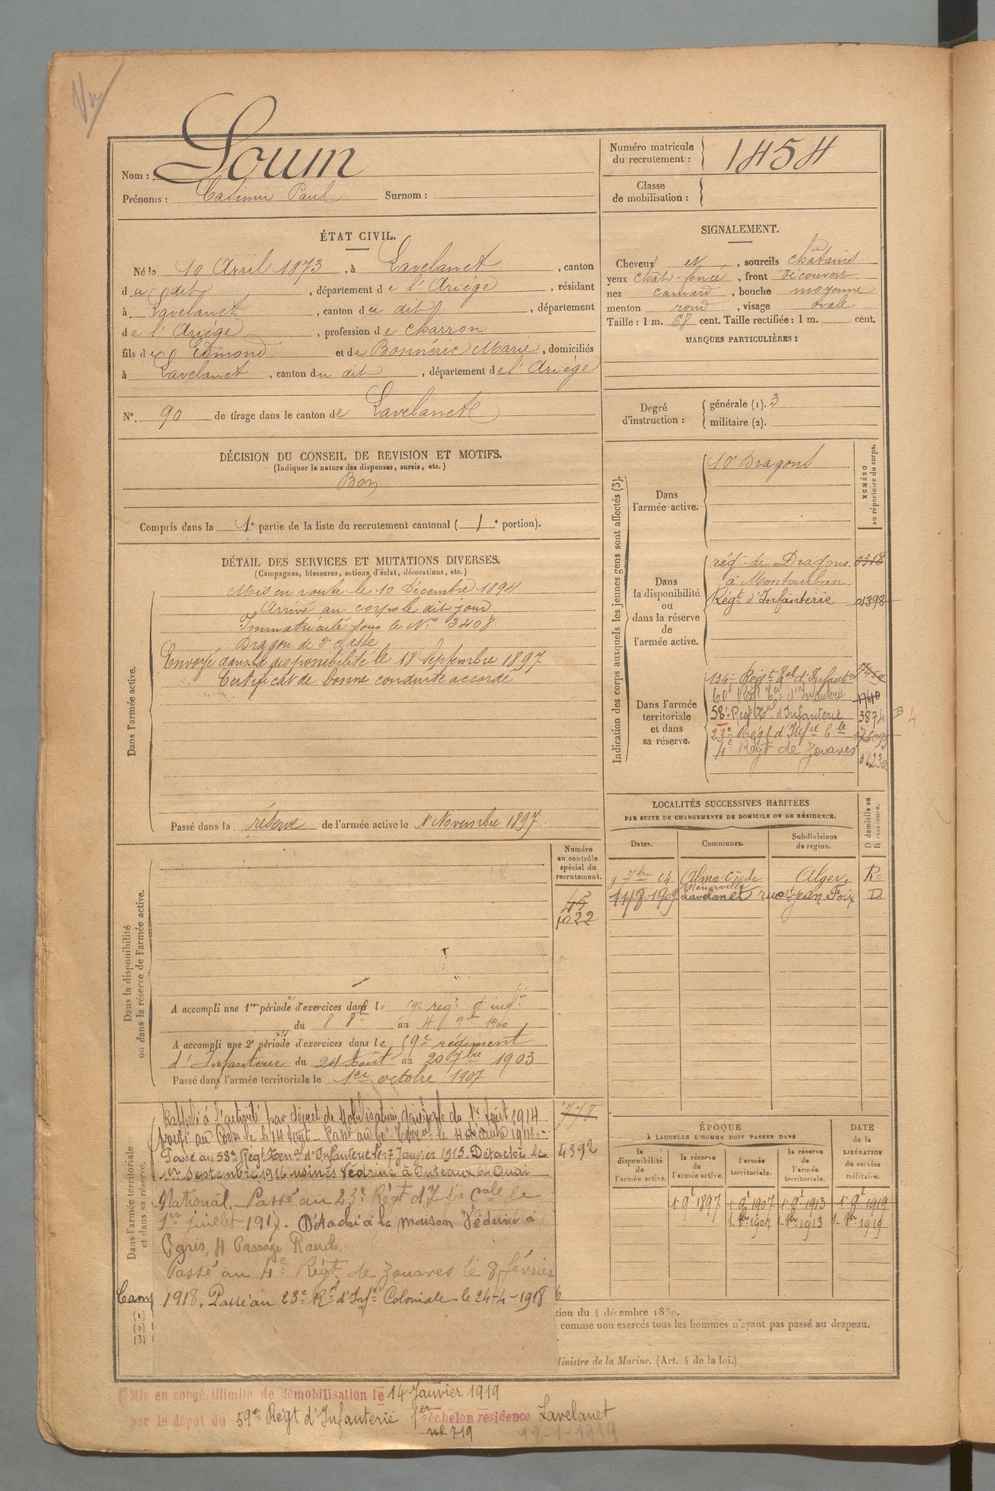 Nom : Loum
Prénoms : Casimir Paul Surnom :
Numéro matricule du recrutement : 1454
Classe de mobilisation :
ÉTAT CIVIL.
Né le 10 Avril 1873, à Lavelanet, canton
du dit, département de l'Ariège, résidant
à Lavelanet, canton du dit, département
de l'Ariège, profession de charron
fils de Edmond et de Bonnéric Marie, domiciliés
à Lavelanet, canton du dit, département de l'Ariège
N° 90 de tirage dans le canton de Lavelanet
SIGNALEMENT.
Cheveux et, sourcils châtains
yeux chat-foncé, front découvert
nez camard, bouche moyenne
menton rond, visage ovale
Taille : 1 m. 68 cent. Taille rectifiée : 1 m. cent.
MARQUES PARTICULIÈRES :
Degré d'instruction : générale (1). 3
militaire (2).
DÉCISION DU CONSEIL DE REVISION ET MOTIFS.
(Indiquer la nature des dispenses, sursis, etc.)
Bon
Compris dans la 1e partie de la liste du recrutement cantonal (1e portion).
DÉTAIL DES SERVICES ET MUTATIONS DIVERSES.
(Campagnes, blessures, actions d'éclat, décorations, etc.)
Dans l'armée active.
Mis en route le 10 Décembre 1894
Arrivé au corps le dit jour
Immatriculé sous le N° 3408
Dragon de 2e classe
Envoyé dans la disponibilité le 18 septembre 1897
Certificat de bonne conduite accordé
Passé dans la réserve de l'armée active le 1er Novembre 1897
Indication des corps auxquels les jeunes gens sont affectés (3).
NUMÉRO au répertoire du corps.
Dans l'armée active.
10e Dragons
Dans la disponibilité ou dans la réserve de l'armée active.
rég. de Dragons 0318
à Montauban
Régt d'Infanterie 01398
Dans l'armée territoriale et dans sa réserve.
134e Régt tal d'Infant
60e Régt tal d'Infanterie 1740
58e Régt tal d'Infanterie 3874
23e Régt d'Infie Cle
4e Régt de Zouaves
LOCALITÉS SUCCESSIVES HABITÉES
PAR SUITE DE CHANGEMENTS DE DOMICILE OU DE RÉSIDENCE.
Dates. Communes. Subdivisions de région. D domicile ou R résidence.
7bre 04 Alma Ménerville Alger R
11/8 1909 Lavelanet rue St Jean Foix D
Dans la disponibilité ou dans la réserve de l'armée active.
Numéro au contrôle spécial du recrutement.
1022
A accompli une 1re période d'exercices dans le
du 8 8bre au 4 9bre 1900
A accompli une 2e période d'exercices dans le 59e régiment
d'Infanterie du 24 Août au 20 7bre 1903
Passé dans l'armée territoriale le 1er octobre 1907
Dans l'armée territoriale et dans sa réserve.
Rappelé à l'activité par décret de Mobilisation générale du 1er Août 1914
4392
Passé au 58e Régt terral d'Infanterie le 7 Janvier 1915. Détaché le
1er Septembre 1916 usines Védrine à Puteaux 61 Quai
National. Passé au 23e Régt d'Infie Cale le
1er juillet 1917. Détaché à la maison Védrine à
Paris, 4 Passage Rauch.
Passé au 4e Régt de Zouaves le 8 février
1918. Passé au 23e Rt d'Infie Coloniale le 24-4-1918
Cam
(1) (2) (3)
ÉPOQUE
A LAQUELLE L'HOMME DOIT PASSER DANS
la disponibilité de l'armée active. la réserve de l'armée active. l'armée territoriale. la réserve de l'armée territoriale.
DATE de la LIBÉRATION du service militaire.
1 9bre 1897 1 8bre 1907 1 8bre 1913 1 8bre 1919
1 8bre 1907 1 8bre 1913 1 8bre 1919
tion du 4 décembre 1889.
comme non exercés tous les hommes n'ayant pas passé au drapeau.
Ministre de la Marine. (Art. 4 de la loi.)
Mis en congé illimité de démobilisation le 14 Janvier 1919
par le dépot du 59e Régt d'Infanterie 1er échelon résidence Lavelanet
n° 719 18-1-1919